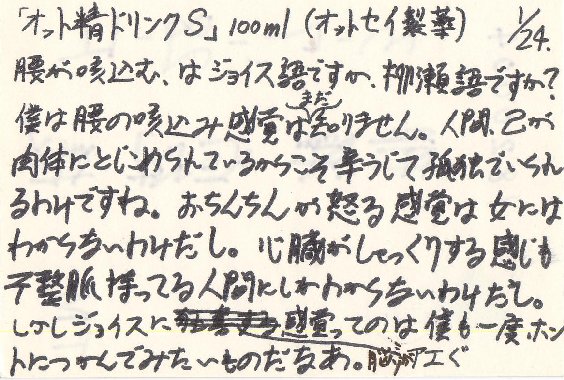 「オット精ドリンクS」100ml（オットセイ製薬） 1/24.
腰が咳込む、はジョイス語ですか、柳瀬語ですか?
僕は腰の咳込み感覚はまだ知りません。人間、己が
肉体にとじめられているからこそ辛うじて孤独でいられ
るわけですね。おちんちんが怒る感覚は女には
わからないわけだし。心臓がしゃっくりする感じも
不整脈持ってる人間にしかわからないわけだし。
しかしジョイスに 感覚ってのは僕も一度ホン
トにつかんでみたいものだなあ。脳みそが エぐ